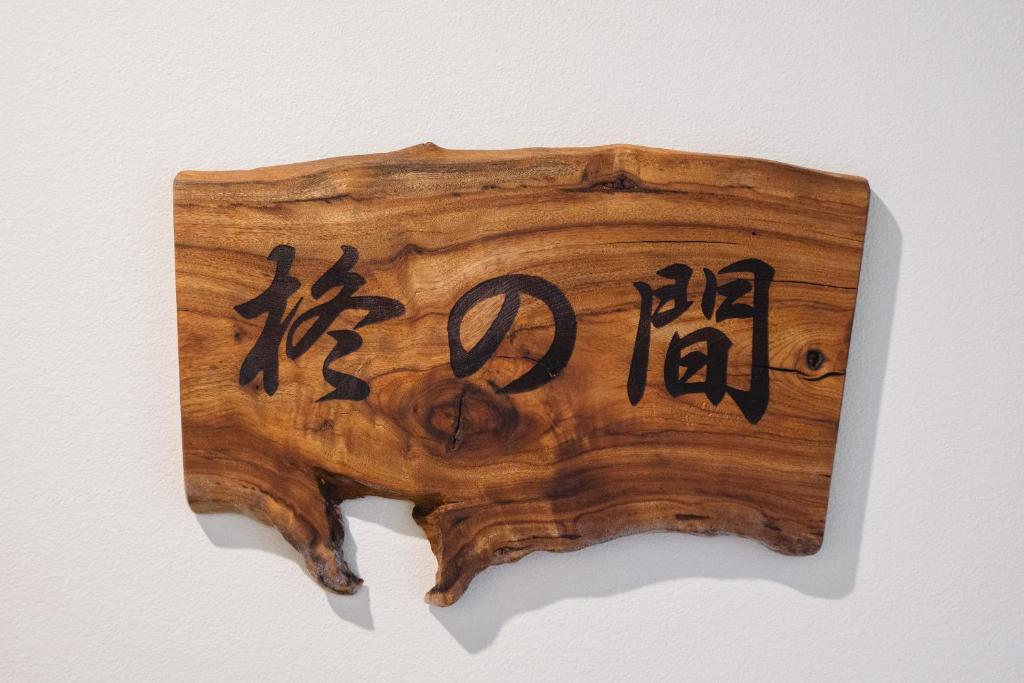 柊の間